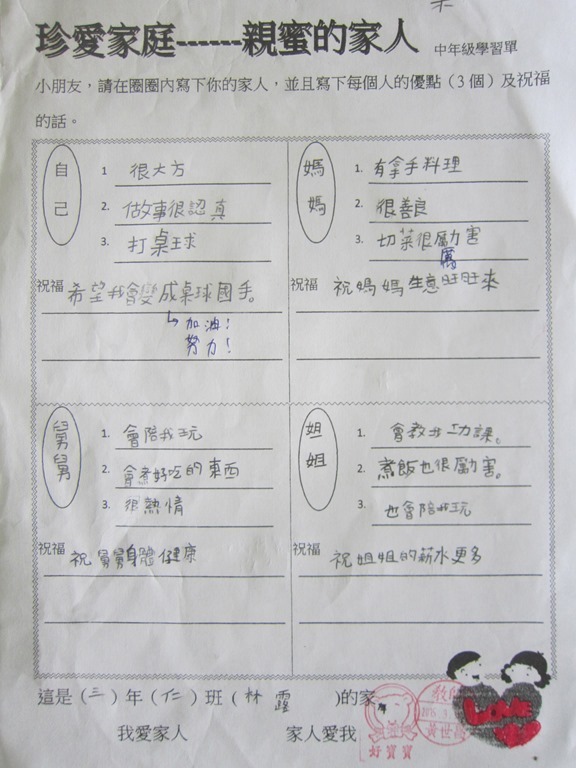 珍愛家庭------親蜜的家人 中年級學習單
小朋友，請在圈圈內寫下你的家人，並且寫下每個人的優點（3 個）及祝福
的話。
自己
1 很大方
2. 做事很認真
3. 打桌球
祝福 希望我會變成桌球國手。
↳加油！
努力！
媽媽
1. 有拿手料理
2. 很善良
3. 切菜很勵害
厲
祝福 祝媽媽生意旺旺來
舅舅
1. 會陪我玩
2. 會煮好吃的東西
3. 很熱情
祝福 祝舅舅身體健康
姐姐
1. 會教我功課。
2. 煮飯也很勵害。
3. 也會陪我玩
祝福 祝姐姐的薪水更多
這是（三）年（仁）班（林 露 ）的家
我愛家人 家人愛我
好寶寶